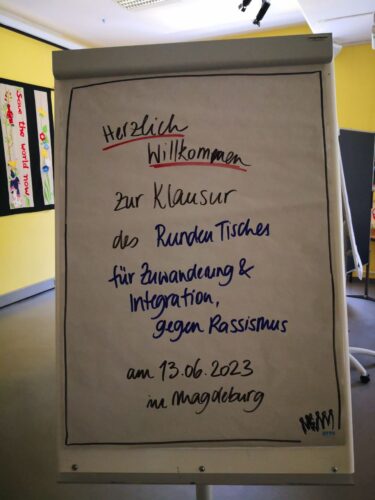 Herzlich
Willkommen
zur Klausur
des Runden Tisches
für Zuwanderung &
Integration,
gegen Rassismus
am 13.06.2023
in Magdeburg
Save the world now